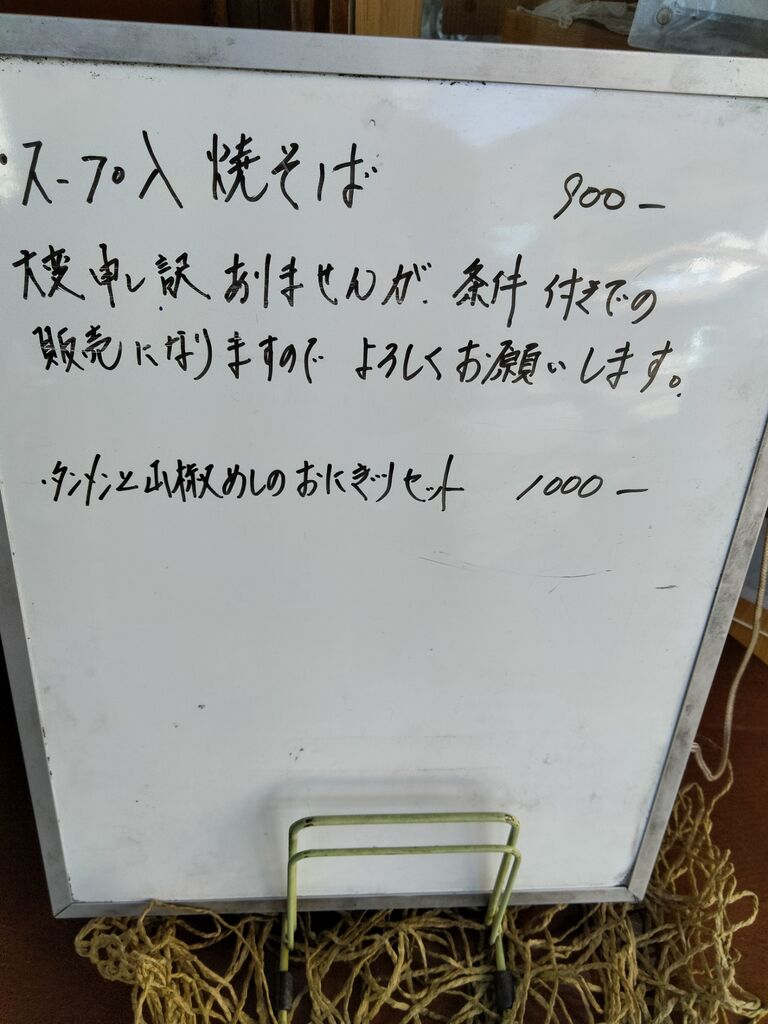 ・スープ入 焼そば 900-
大変申し訳ありませんが、条件付きでの
販売になりますので よろしくお願いします。
・タンメンと山椒めしのおにぎりセット 1000-